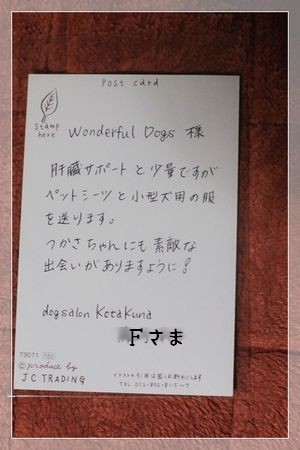 Post card
Stamp
here
Wonderful Dogs 様
肝臓サポートと少量ですが
ペットシーツと小型犬用の服
を送ります。
つかさちゃんにも素敵な
出会いがありますように!
dogsalon Kotakuna
Fさま
79071 150
© produce by
JC TRADING